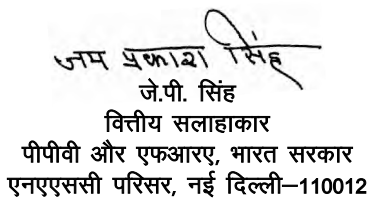 जय प्रकाश सिंह
जे.पी. सिंह
वित्तीय सलाहाकार
पीपीवी और एफआरए, भारत सरकार
एनएएससी परिसर, नई दिल्ली–110012